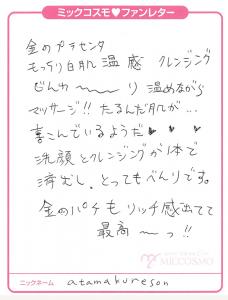 ミックコスモ♥ファンレター
金のプラセンタ
もっちり白肌 温 感 クレンジング
じんわ～～り 温めながら
マッサージ!! たるんだ肌が…
喜こんでいるようだ♥ ♥ ♥
洗顔とクレンジングが1本で
済むし、とってもべんりです。
金のパケも リッチ感出てて
最高～っ!!
MICCOSMO
ニックネーム atamabureson